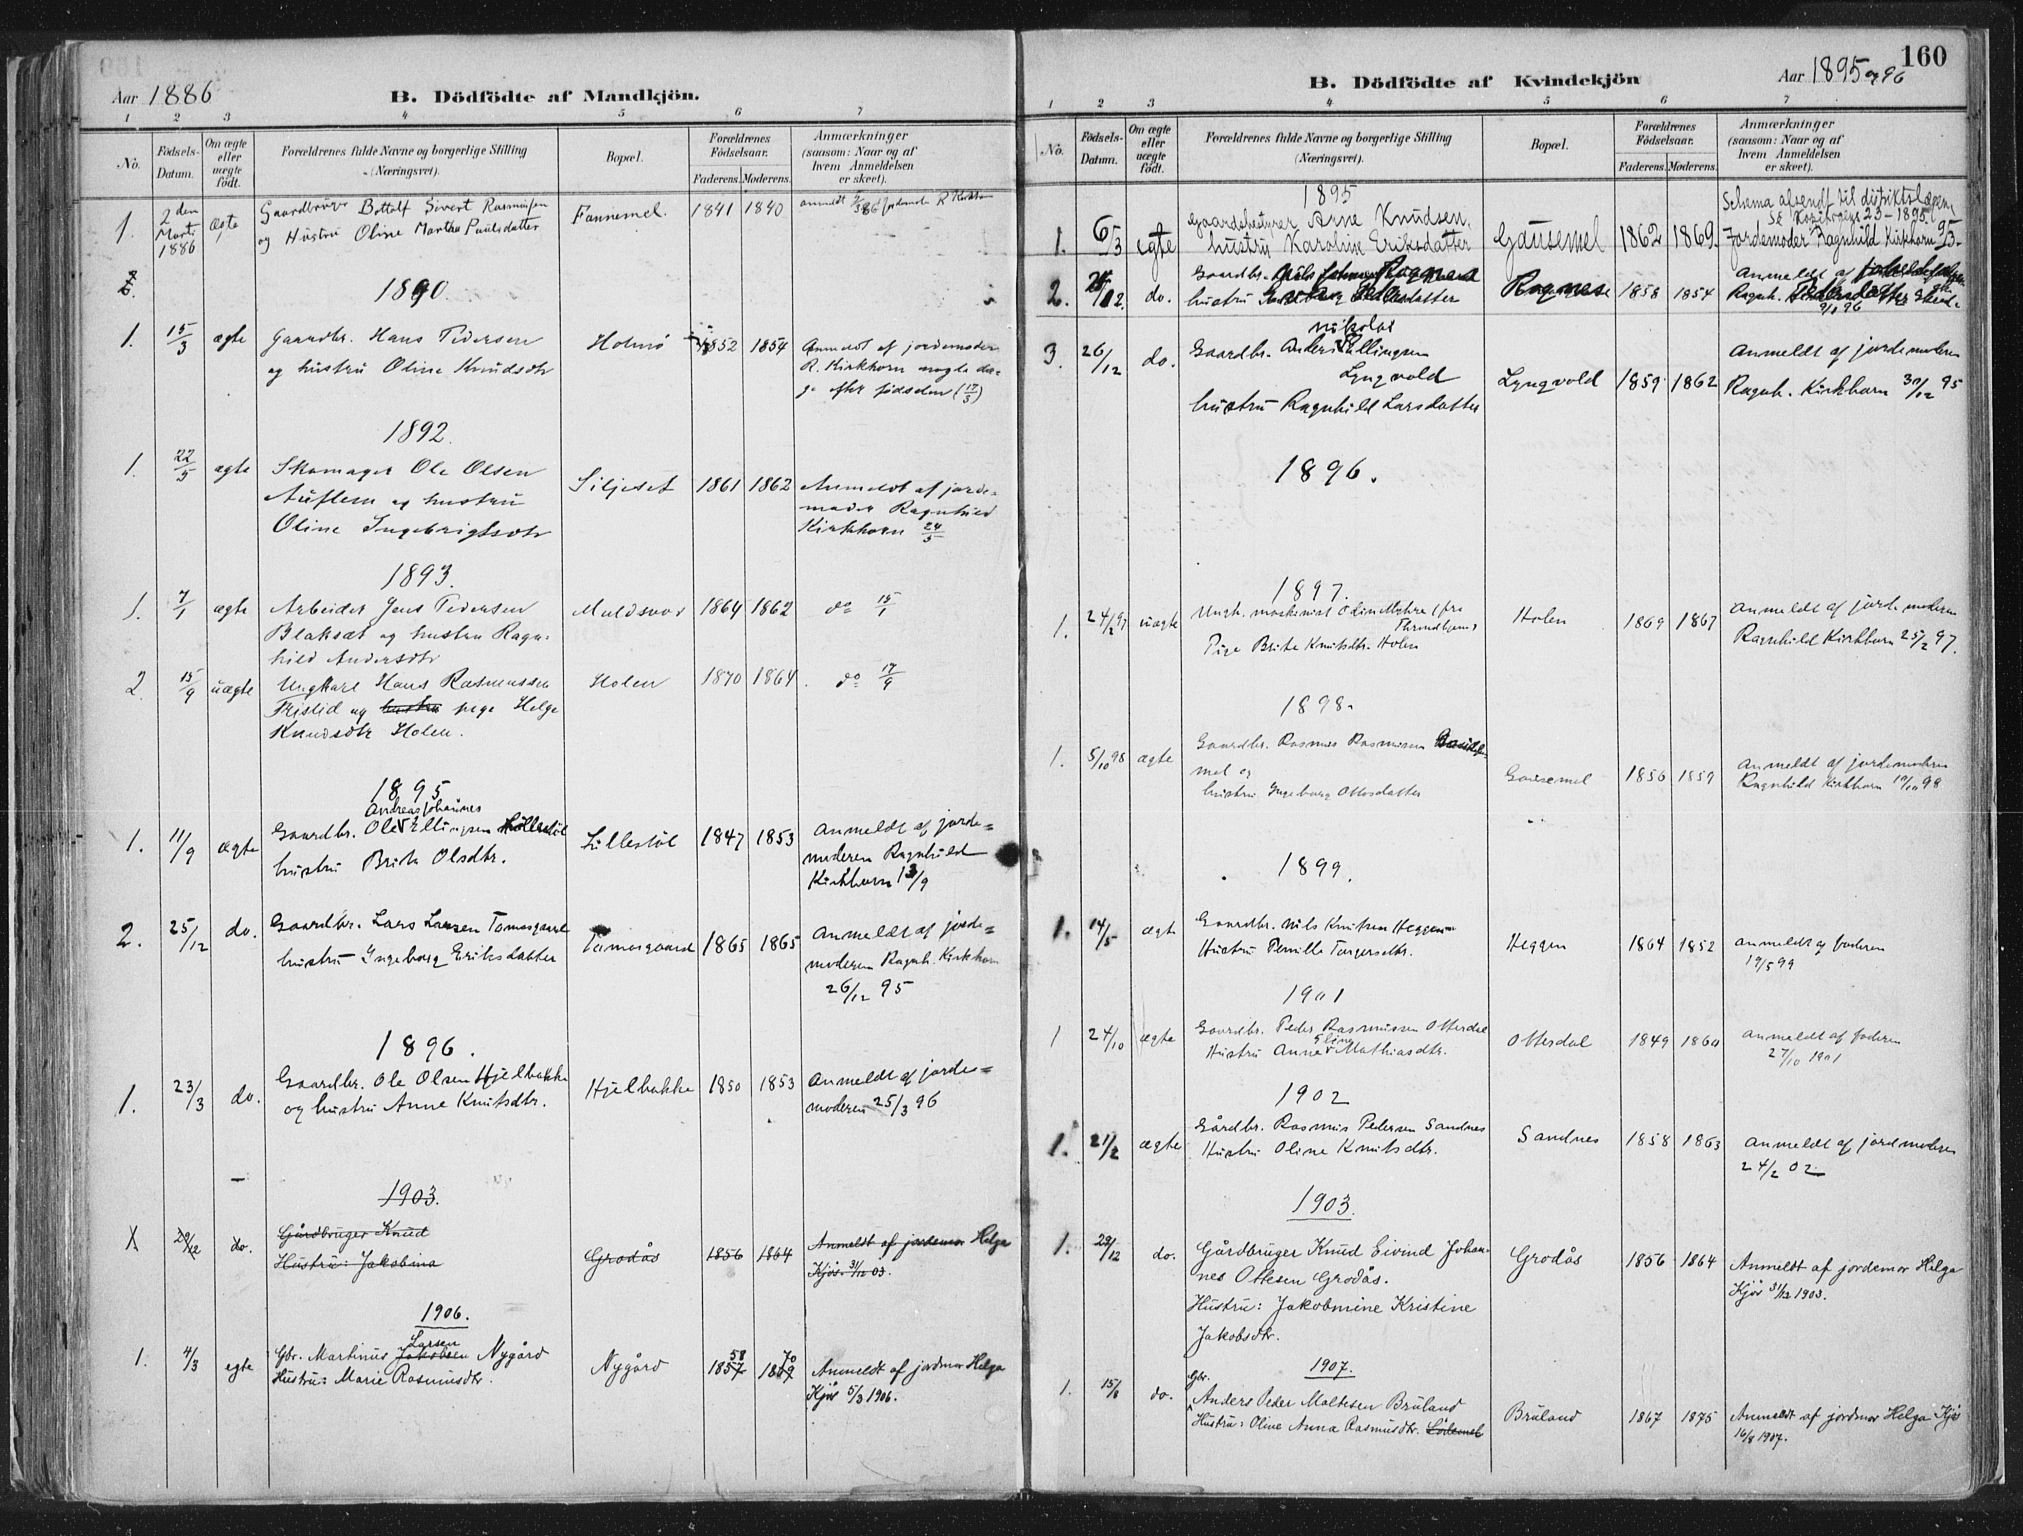 Aar 1886
B. Dödfödte af Mandkjön.
1 2 3 4 5 6 7
No.
Födsels-Datum.
Om ægte eller uægte födt.
Forældrenes fulde Navne og borgerlige Stilling (Næringsvei).
Bopæl.
Forældrenes Födselsaar.
Faderens. Moderens.
Anmærkninger (saasom: Naar og af hvem Anmeldelsen er skeet).
1. 2den Marts 1886 ægte Gaardbruger Bottolf Sivert Rasmusen Fannemel. 1841 1840
og Hustru Oline Martha Paulsdatter
1890.
1. 15/3 ægte Gaardbr. Hans Pedersen Holmö 1852 1854 Anmeldt af jordemoder
og hustru Oline Knudsdtr R. Kirkhorn nogle da-
ge efter födselen (17/3)
1892.
1. 22/5 ægte Skomager Ole Olsen Siljeset 1861 1862 Anmeldt af jorde-
Auflem og hustru moder Ragnhild
Oline Ingebrigtsdtr Kirkhorn 24/5
1893.
1. 7/1 ægte Arbeider Jens Pedersen Muldsvor 1864 1862 do 15/1
Blaksæt og hustru Ragn-
hild Andersdtr
2. 15/9 uægte Ungkarl Hans Rasmussen Holen 1870 1864 do 17/9
Fristid og hustru pige Helge
Knudsdtr Holen.
1895
Andreas Johannes
1. 11/9 ægte Gaardbr. Ole Ellingsen Lillestöl Lillestöl 1847 1853 Anmeldt af jorde=
hustru Brite Olsdtr. moderen Ragnhild
Kirkhorn 13/9
2. 25/12 do. Gaardbr. Lars Larsen Tomasgaard Tomasgaard 1865 1865 Anmeldt af jorde=
hustru Ingeborg Eriksdatter moderen Ragnh. Kirkhorn
26/12 95
1896.
1. 23/3 do. Gaardbr. Ole Olsen Hjelbakke Hjelbakke 1850 1853 Anmeldt af jorde=
og hustru Anne Knutsdtr. moderen 25/3 96
1903.
1. 29/12 do. Gårdbruger Knud Grodås 1856 1864 Anmeldt af jordemor Helga
Hustru: Jakobina Kjös 31/12 03.
1906.
Larsen 58 70
1. 4/3 egte Gbr. Martinus Jakobsen Nygård Nygård 1857 1869 Anmeldt af jordmor Helga
Hustru: Marie Rasmusdtr. Kjös 5/3 1906.
160
Aar 1895 og 96
B. Dödfödte af Kvindekjön
1 2 3 4 5 6 7
No.
Födsels-Datum.
Om ægte eller uægte födt.
Forældrenes fulde Navne og borgerlige Stilling (Næringsvei).
Bopæl.
Forældrenes Födselsaar.
Faderens. Moderens.
Anmærkninger (saasom: Naar og af hvem Anmeldelsen er skeet).
1895 Schema afsendt til distriktslægen
1. 6/3 egte Gaardsbestyrer Arne Knudsen, Gausemel 1862 1869.
hustru Karoline Eriksdatter Jordemoder Ragnhild Kirkhorn 9/3-
2. do. Gaardbr. Ragnes 1858 1854 Anmeldt af
hustru
3. 26/12 do. Gaardbr. Anders Nikolai Ellingsen Anmeldt af jordemoderen
Lyngvold Lyngvold 1859 1862 Ragnh. Kirkhorn 30/12 95
hustru Ragnhild Larsdatter
1896.
1897.
1. 24/2 97 uægte Ungk. maskinist Odin Myhre (fra Holen 1869 1867 Anmeldt af jordemoderen
Throndhjem) Ragnhild Kirkhorn 25/2 97.
Pige Brite Knutsdtr. Holen
1898.
1. 5/10 98 ægte Gaardbr. Rasmus Rasmusen Gausemel 1856 1859 Anmeldt af jordemoderen
mel og Ragnhild Kirkhorn 10/10 98
hustru Ingeborg Ottosdatter
1899.
1. 14/5 ægte Gaardbr. Nils Knutsen Heggen Heggen 1864 1852 Anmeldt af faderen
Hustru Pernille Torgersdtr. 19/5 99
1901
1 24/10 ægte Gaardbr. Peder Rasmussen Otterdal Otterdal 1849 1860 Anmeldt af faderen
Hustru Anne Eline Mathiasdtr. 27/10 1901
1902
1. 21/2 ægte Gårdbr. Rasmus Pedersen Sandnes Sandnes 1858 1863 Anmeldt af jordmoderen
Hustru Oline Knutsdtr. 24/2 02
1903.
1. 29/12 do. Gårdbruger Knud Eivind Johan- Grodås 1856 1864 Anmeldt af jordemor Helga
nes Ottesen Grodås. Kjös 31/12 1903.
Hustru: Jakobmine Kristine
Jakobsdtr.
1907.
1. 15/8 do. Gbr. Anders Peder Maltesen Bruland Bruland 1867 1875 Anmeldt af jordmor Helga Kjös
Hustru: Oline Anna Rasmusdtr. 16/8 1907.